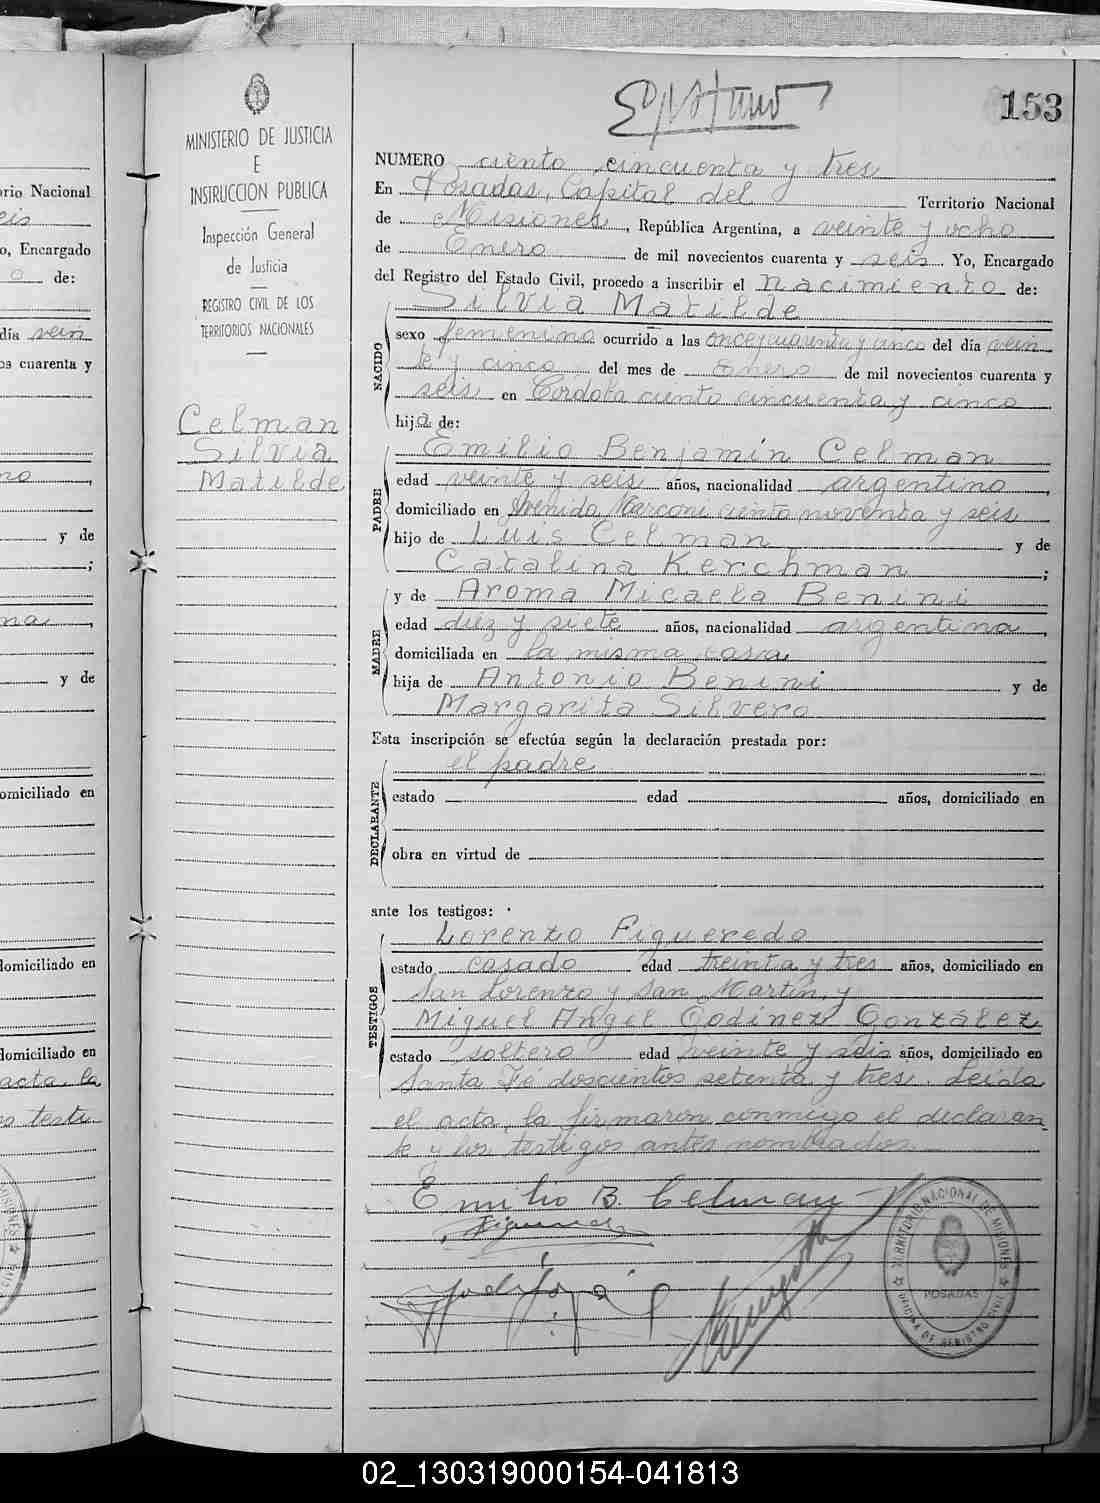 153
MINISTERIO DE JUSTICIA
E
INSTRUCCION PUBLICA
Inspección General
de Justicia
REGISTRO CIVIL DE LOS
TERRITORIOS NACIONALES
Celman
Silvia
Matilde
NUMERO ciento cincuenta y tres
En Posadas, Capital del Territorio Nacional
de Misiones, República Argentina, a veinte y ocho
de Enero de mil novecientos cuarenta y seis Yo, Encargado
del Registro del Estado Civil, procedo a inscribir el nacimiento de:
Silvia Matilde
NACIDO
sexo femenino ocurrido a las once y cuarenta y cinco del día vein
te y cinco del mes de Enero de mil novecientos cuarenta y
seis en Cordoba ciento cincuenta y cinco
hija de:
Emilio Benjamín Celman
PADRE
edad veinte y seis años, nacionalidad argentino,
domiciliado en Avenida Marconi ciento noventa y seis
hijo de Luis Celman y de
Catalina Kerchman;
y de Aroma Micaela Benini
MADRE
edad diez y siete años, nacionalidad argentina,
domiciliada en la misma casa
hija de Antonio Benini y de
Margarita Silvero
Esta inscripción se efectúa según la declaración prestada por:
el padre
DECLARANTE
estado edad años, domiciliado en
obra en virtud de
ante los testigos:
Lorenzo Figueredo
TESTIGOS
estado casado edad treinta y tres años, domiciliado en
San Lorenzo y San Martín, y
Miguel Angel Godinez González
estado soltero edad veinte y seis años, domiciliado en
Santa Fé doscientos setenta y tres. Leída
el acta, la firmaron conmigo el declaran-
te y los testigos antes nombrados
Emilio B. Celman
TERRITORIO NACIONAL DE MISIONES
POSADAS
OFICINA DE REGISTRO CIVIL
rio Nacional
eis
o, Encargado
o de:
día vein
os cuarenta y
no,
y de
;
na,
y de
omiciliado en
domiciliado en
domiciliado en
acta, la
s testi-
02_130319000154-041813